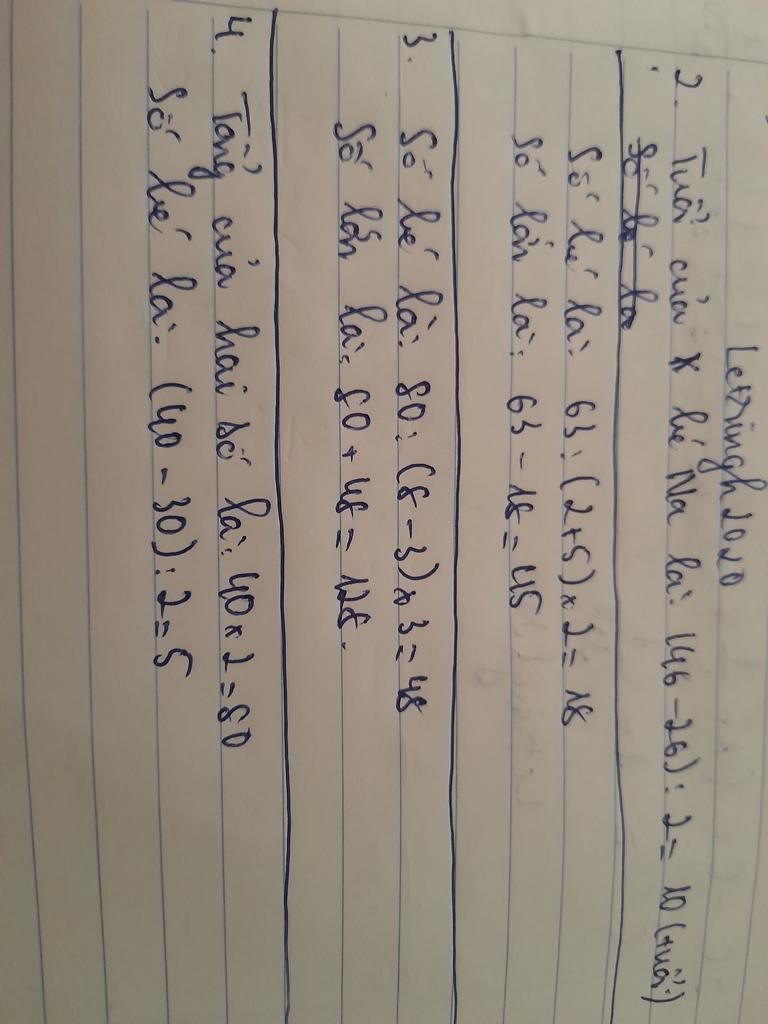 Lettringh2020
2. Tuổi của x bé Na là: (46 - 26) : 2 = 10 (tuổi)
Số bé là
Số bé là: 63 : (2+5) x 2 = 18
Số lớn là: 63 - 18 = 45
3. Số bé là: 80 : (8 - 3) x 3 = 48
Số lớn là: 80 + 48 = 128.
4. Tổng của hai số là: 40 x 2 = 80
Số bé là: (40 - 30) : 2 = 5